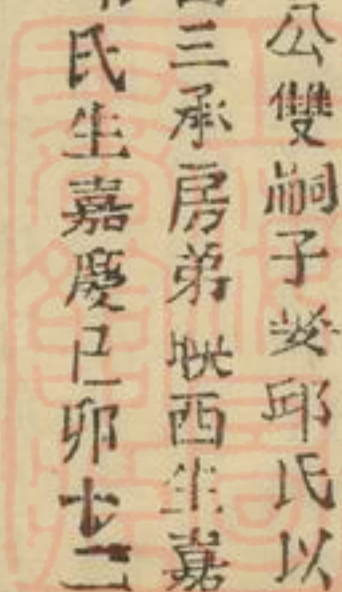 公雙嗣子娶邱氏以
三承房弟咣酉生嘉
氏生嘉慶己卯十二